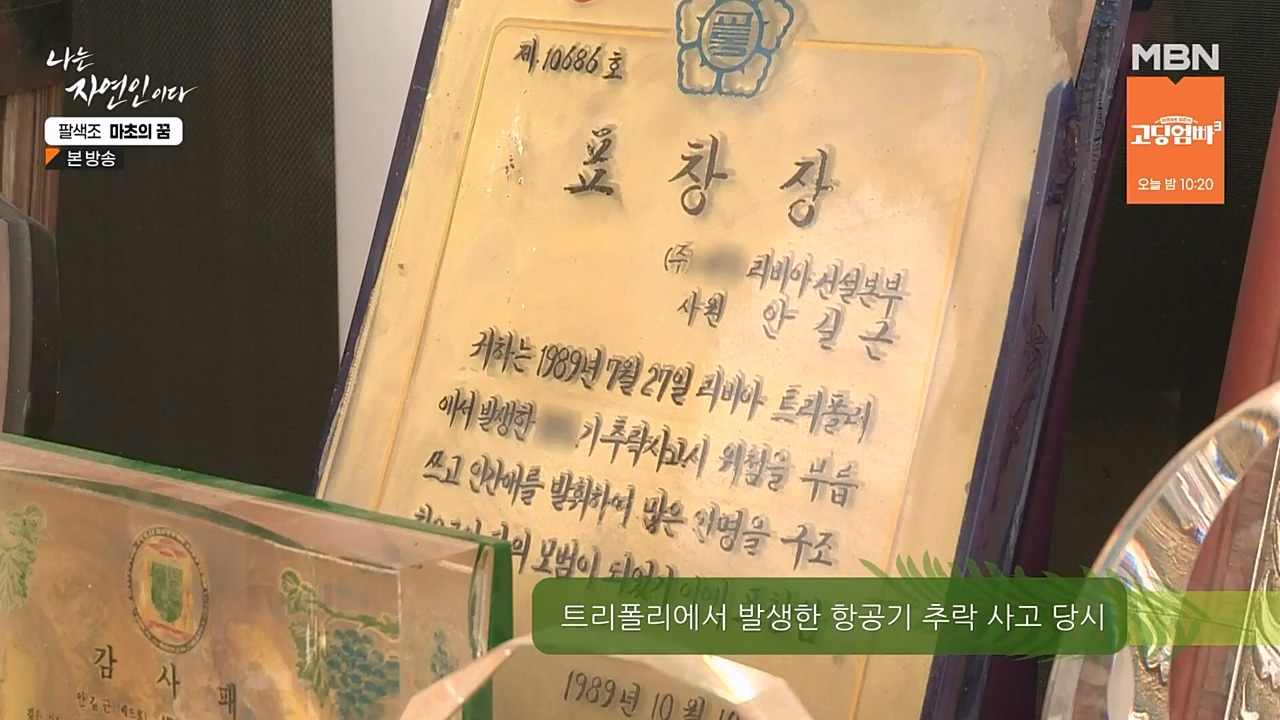 나는
자연인이다
팔색조 마초의 꿈
본 방송
MBN
고딩엄빠3
오늘 밤 10:20
제 10686 호
표 창 장
(주) 리비아건설본부
사원 안 길 근
귀하는 1989년 7월 27일 리비아 트리폴리
에서 발생한 기 추락사고시 위험을 무릅
쓰고 인간애를 발휘하여 많은 인명을 구조
모범이 되었기 이에
1989년 10월
감 사 패
안길근
트리폴리에서 발생한 항공기 추락 사고 당시